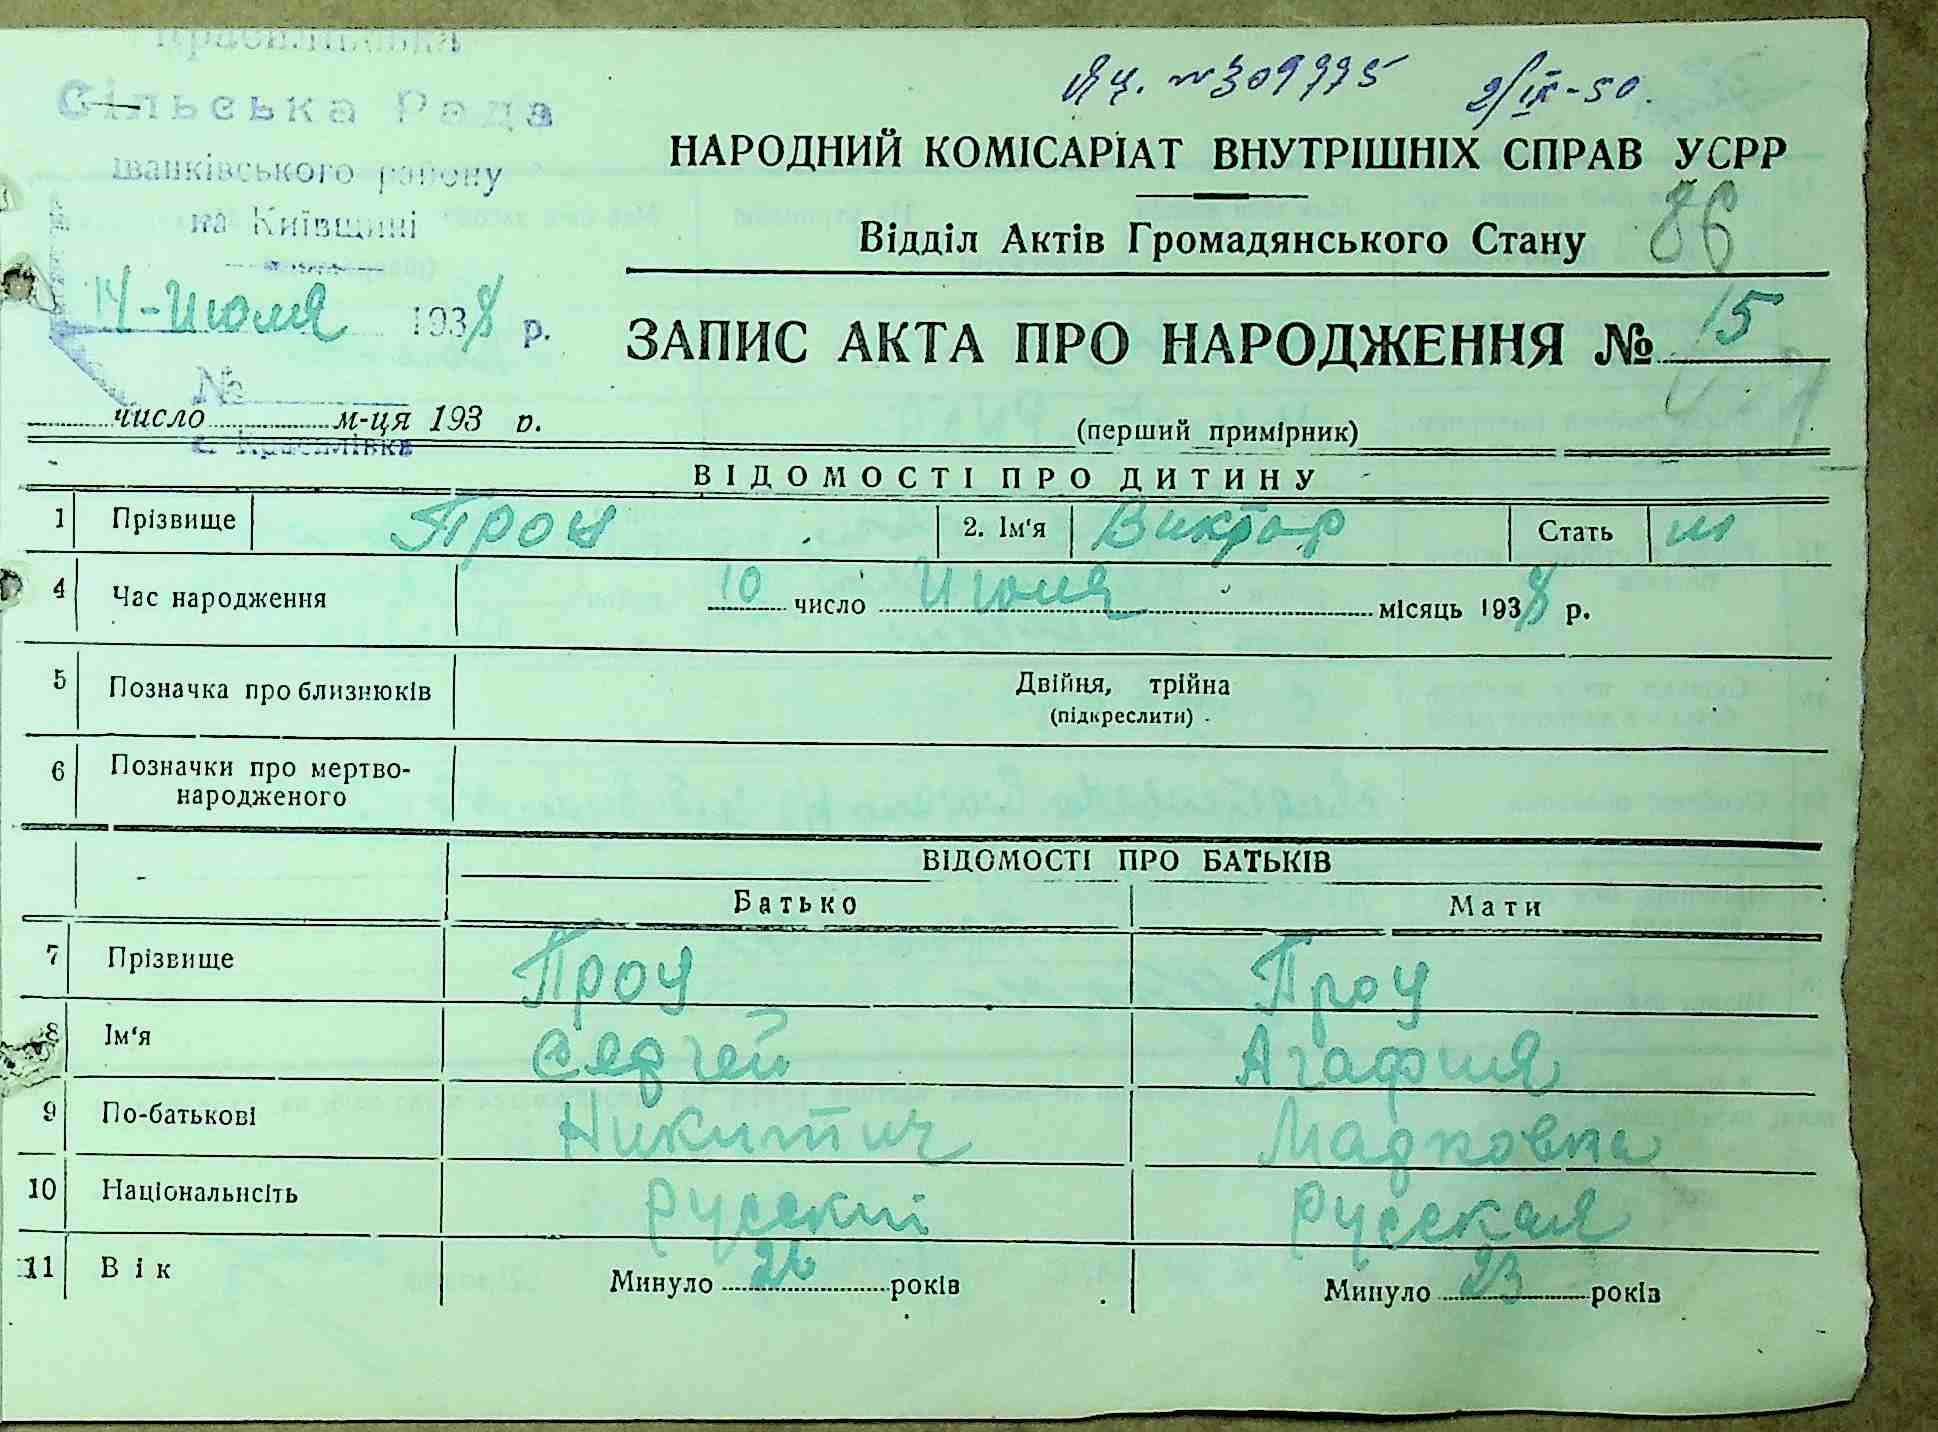 Сільська Рада
Іванківського району
на Київщині
14-Июля 1938 р.
№
с. Красилівка
Яц. №309775 2/IX-50.
НАРОДНИЙ КОМІСАРІАТ ВНУТРІШНІХ СПРАВ УСРР
86
Відділ Актів Громадянського Стану
ЗАПИС АКТА ПРО НАРОДЖЕННЯ № 15
число м-ця 193 р.
(перший примірник)
ВІДОМОСТІ ПРО ДИТИНУ
1 Прізвище Проц 2. Ім'я Виктор Стать м
4 Час народження 10 число Июля місяць 1938 р.
5 Позначка про близнюків Двійня, трійна
(підкреслити)
6 Позначки про мертво-
народженого
ВІДОМОСТІ ПРО БАТЬКІВ
Батько Мати
7 Прізвище Проц Проц
8 Ім'я Сергей Агафия
9 По-батькові Никитич Марковна
10 Національність русский русская
11 Вік Минуло 26 років Минуло 23 років